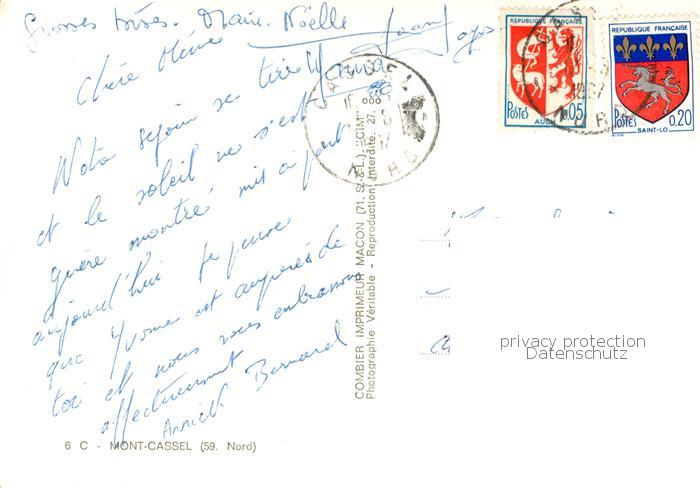 Grosses bises. Marie-Noëlle
Chère Mémé
Notre séjour se tire
et le soleil ne s'est
guère montré mis à part
aujourd'hui je pense
que Yvonne est auprès de
toi et nous vous embrassons
affectueusement
Annick Bernard
6 C - MONT-CASSEL (59. Nord)
COMBIER IMPRIMEUR MACON (71. S.-&-L.)
Photographie Véritable - Reproduction Interdite.
CASSEL
NORD
REPUBLIQUE FRANÇAISE
POSTES 0,05
AUCH
REPUBLIQUE FRANÇAISE
POSTES 0,20
SAINT-LO
privacy protection
Datenschutz